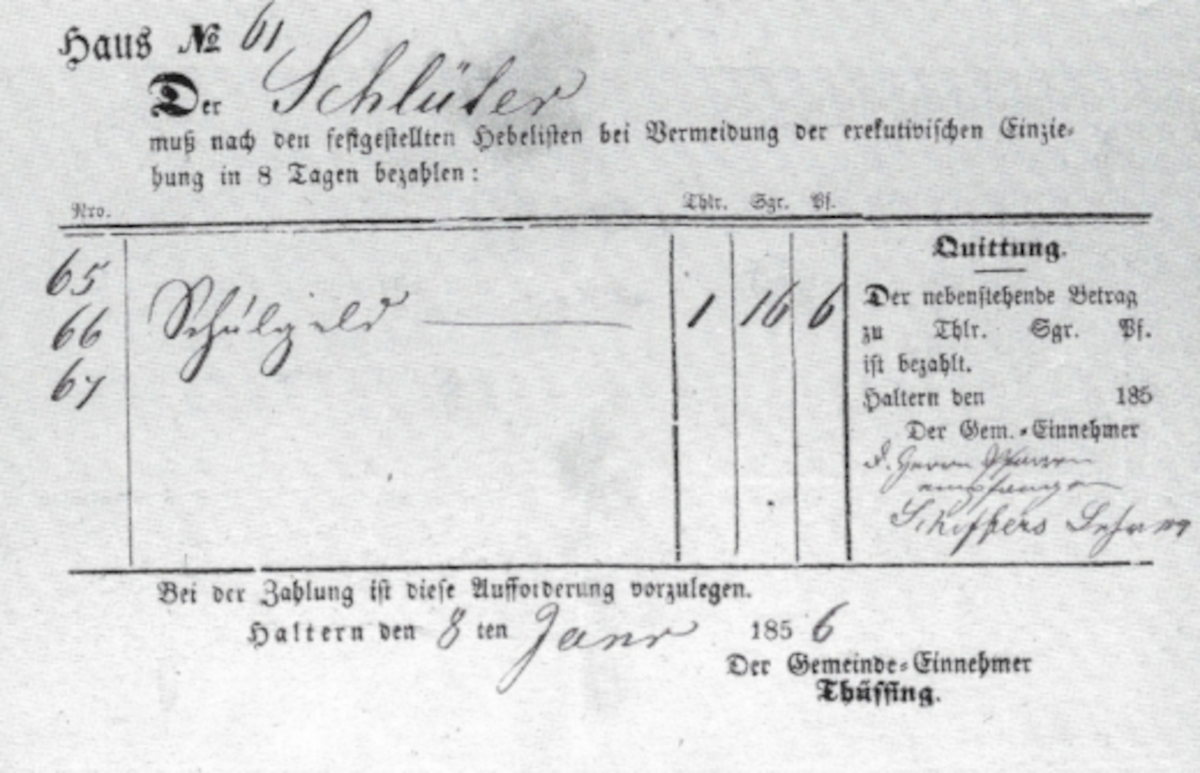 Haus № 61
Der Schlüter
muß nach den festgestellten Hebelisten bei Vermeidung der exekutivischen Einzie-
hung in 8 Tagen bezahlen:
Nro. Thlr. Sgr. Pf.
65
66
67
Schulgeld 1 16 6
Quittung.
Der nebenstehende Betrag
zu Thlr. Sgr. Pf.
ist bezahlt.
Haltern den 185
Der Gem.-Einnehmer
empfangen
Schippers
Bei der Zahlung ist diese Aufforderung vorzulegen.
Haltern den 8 ten Janr 1856
Der Gemeinde-Einnehmer
Thüssing.